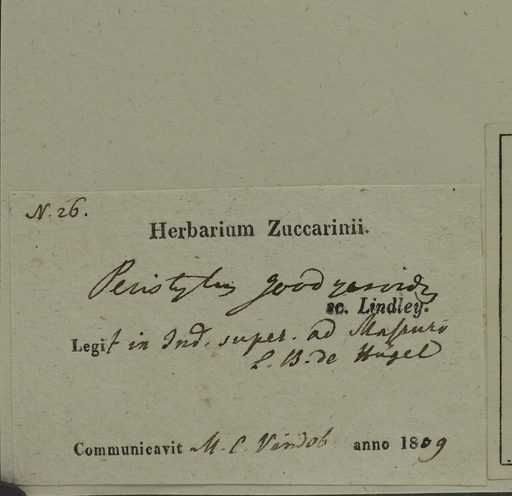 N. 26.
Herbarium Zuccarinii.
Peristylus goodyeroides
sc. Lindley.
Legit in Ind. super. ad Massuro
L. B. de Hügel
Communicavit M. C. Vindob. anno 1839